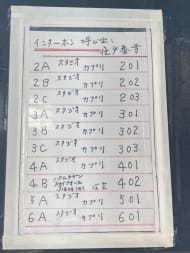 インターホン 呼び出し
住戸番号
2A スタジオ カプリ 201
2B スタジオ カプリ 202
2C スタジオ カプリ 203
3A スタジオ カプリ 301
3B スタジオ カプリ 302
3C スタジオ カプリ 303
4A スタジオ カプリ 401
4B 402
5A スタジオ カプリ 501
6A スタジオ カプリ 601